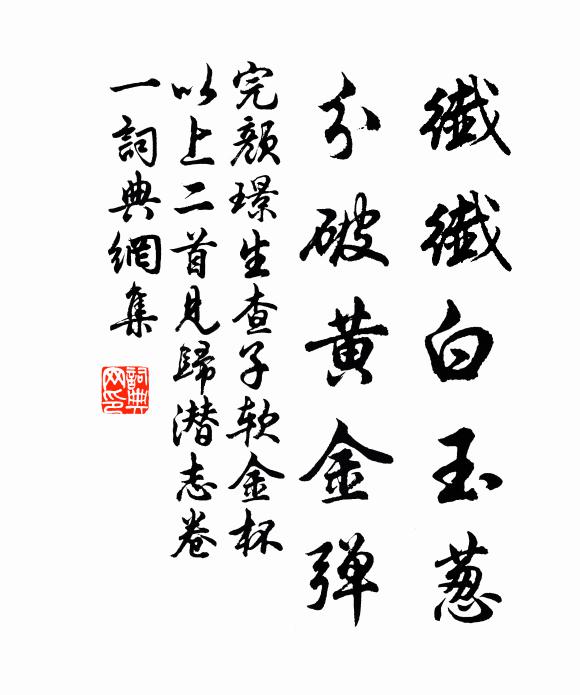 纖纖白玉葱
分破黄金弹
完颜璟生查子软金杯
以上二首見歸潛志卷
一詞典網集
詞典網印